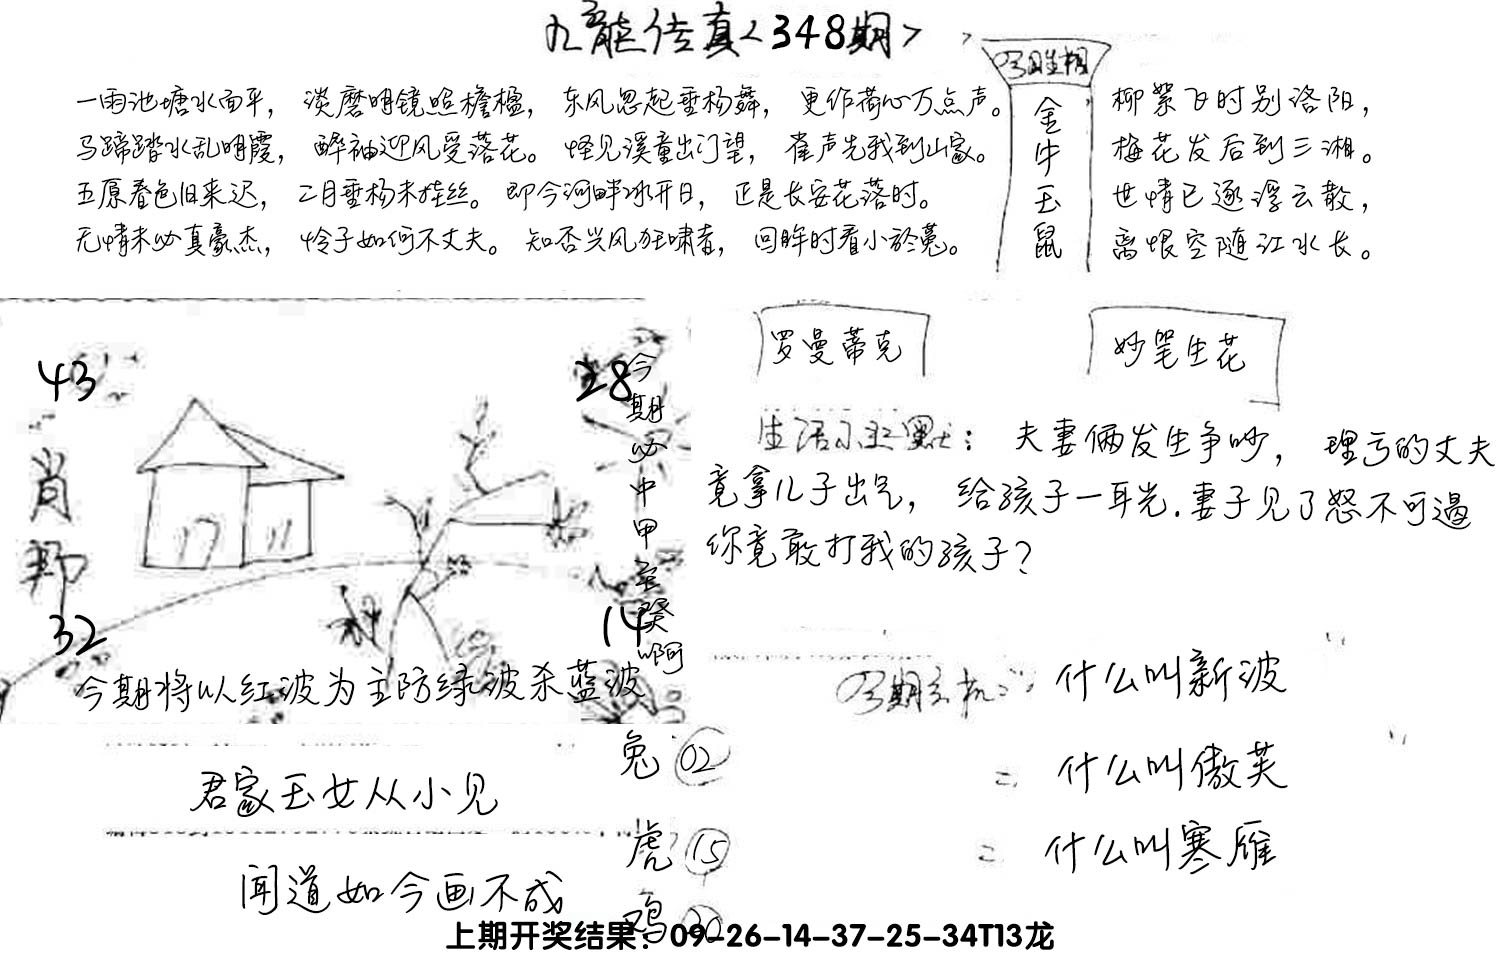 九龙传真<348期>
一雨池塘水面平，淡磨明镜照檐楹，东风忽起垂杨舞，更作荷心万点声。
马蹄踏水乱明霞，醉袖迎风受落花。怪见溪童出门望，雀声先我到山家。
五原春色旧来迟，二月垂杨未挂丝。即今河畔冰开日，正是长安花落时。
无情未必真豪杰，怜子如何不丈夫。知否兴风狂啸者，回眸时看小於菟。
今期生相
金牛玉鼠
柳絮飞时别洛阳，
梅花发后到三湘。
世情已逐浮云散，
离恨空随江水长。
43
28
肖
32
14
今期必中甲至癸啊
今期将以红波为主防绿波杀蓝波
罗曼蒂克
妙笔生花
生活小幽默：夫妻俩发生争吵，理亏的丈夫
竟拿儿子出气，给孩子一耳光.妻子见了怒不可遏
你竟敢打我的孩子？
今期玄机：什么叫新波
二 什么叫傲芙
二 什么叫寒雁
君家玉女从小见
闻道如今画不成
兔 02
虎 15
鸡 30
上期开奖结果：09-26-14-37-25-34T13龙